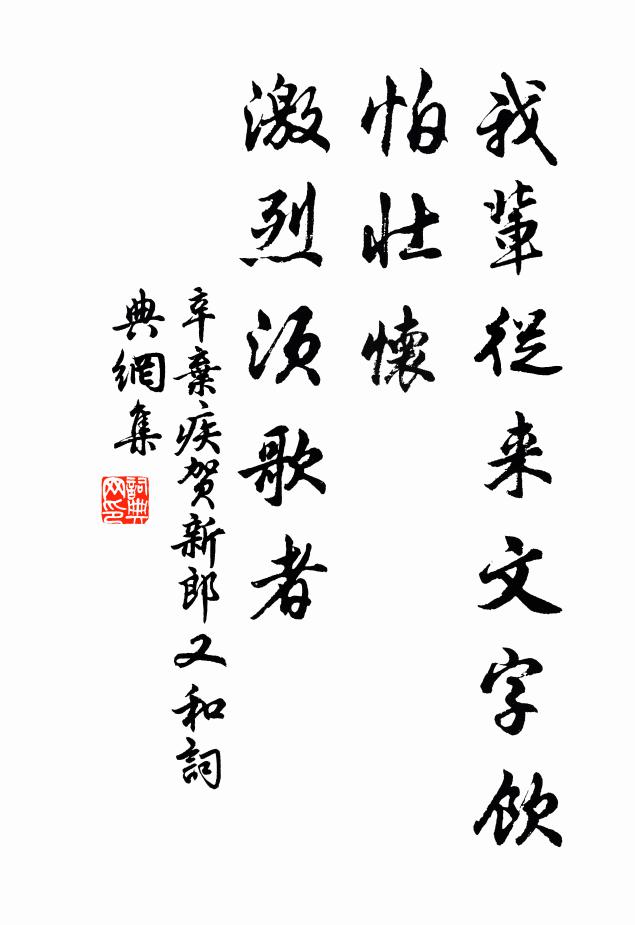 我輩從来文字飲
怕壮懷
激烈須歌者
辛棄疾賀新郎又和詞
典網集
詞典
网印